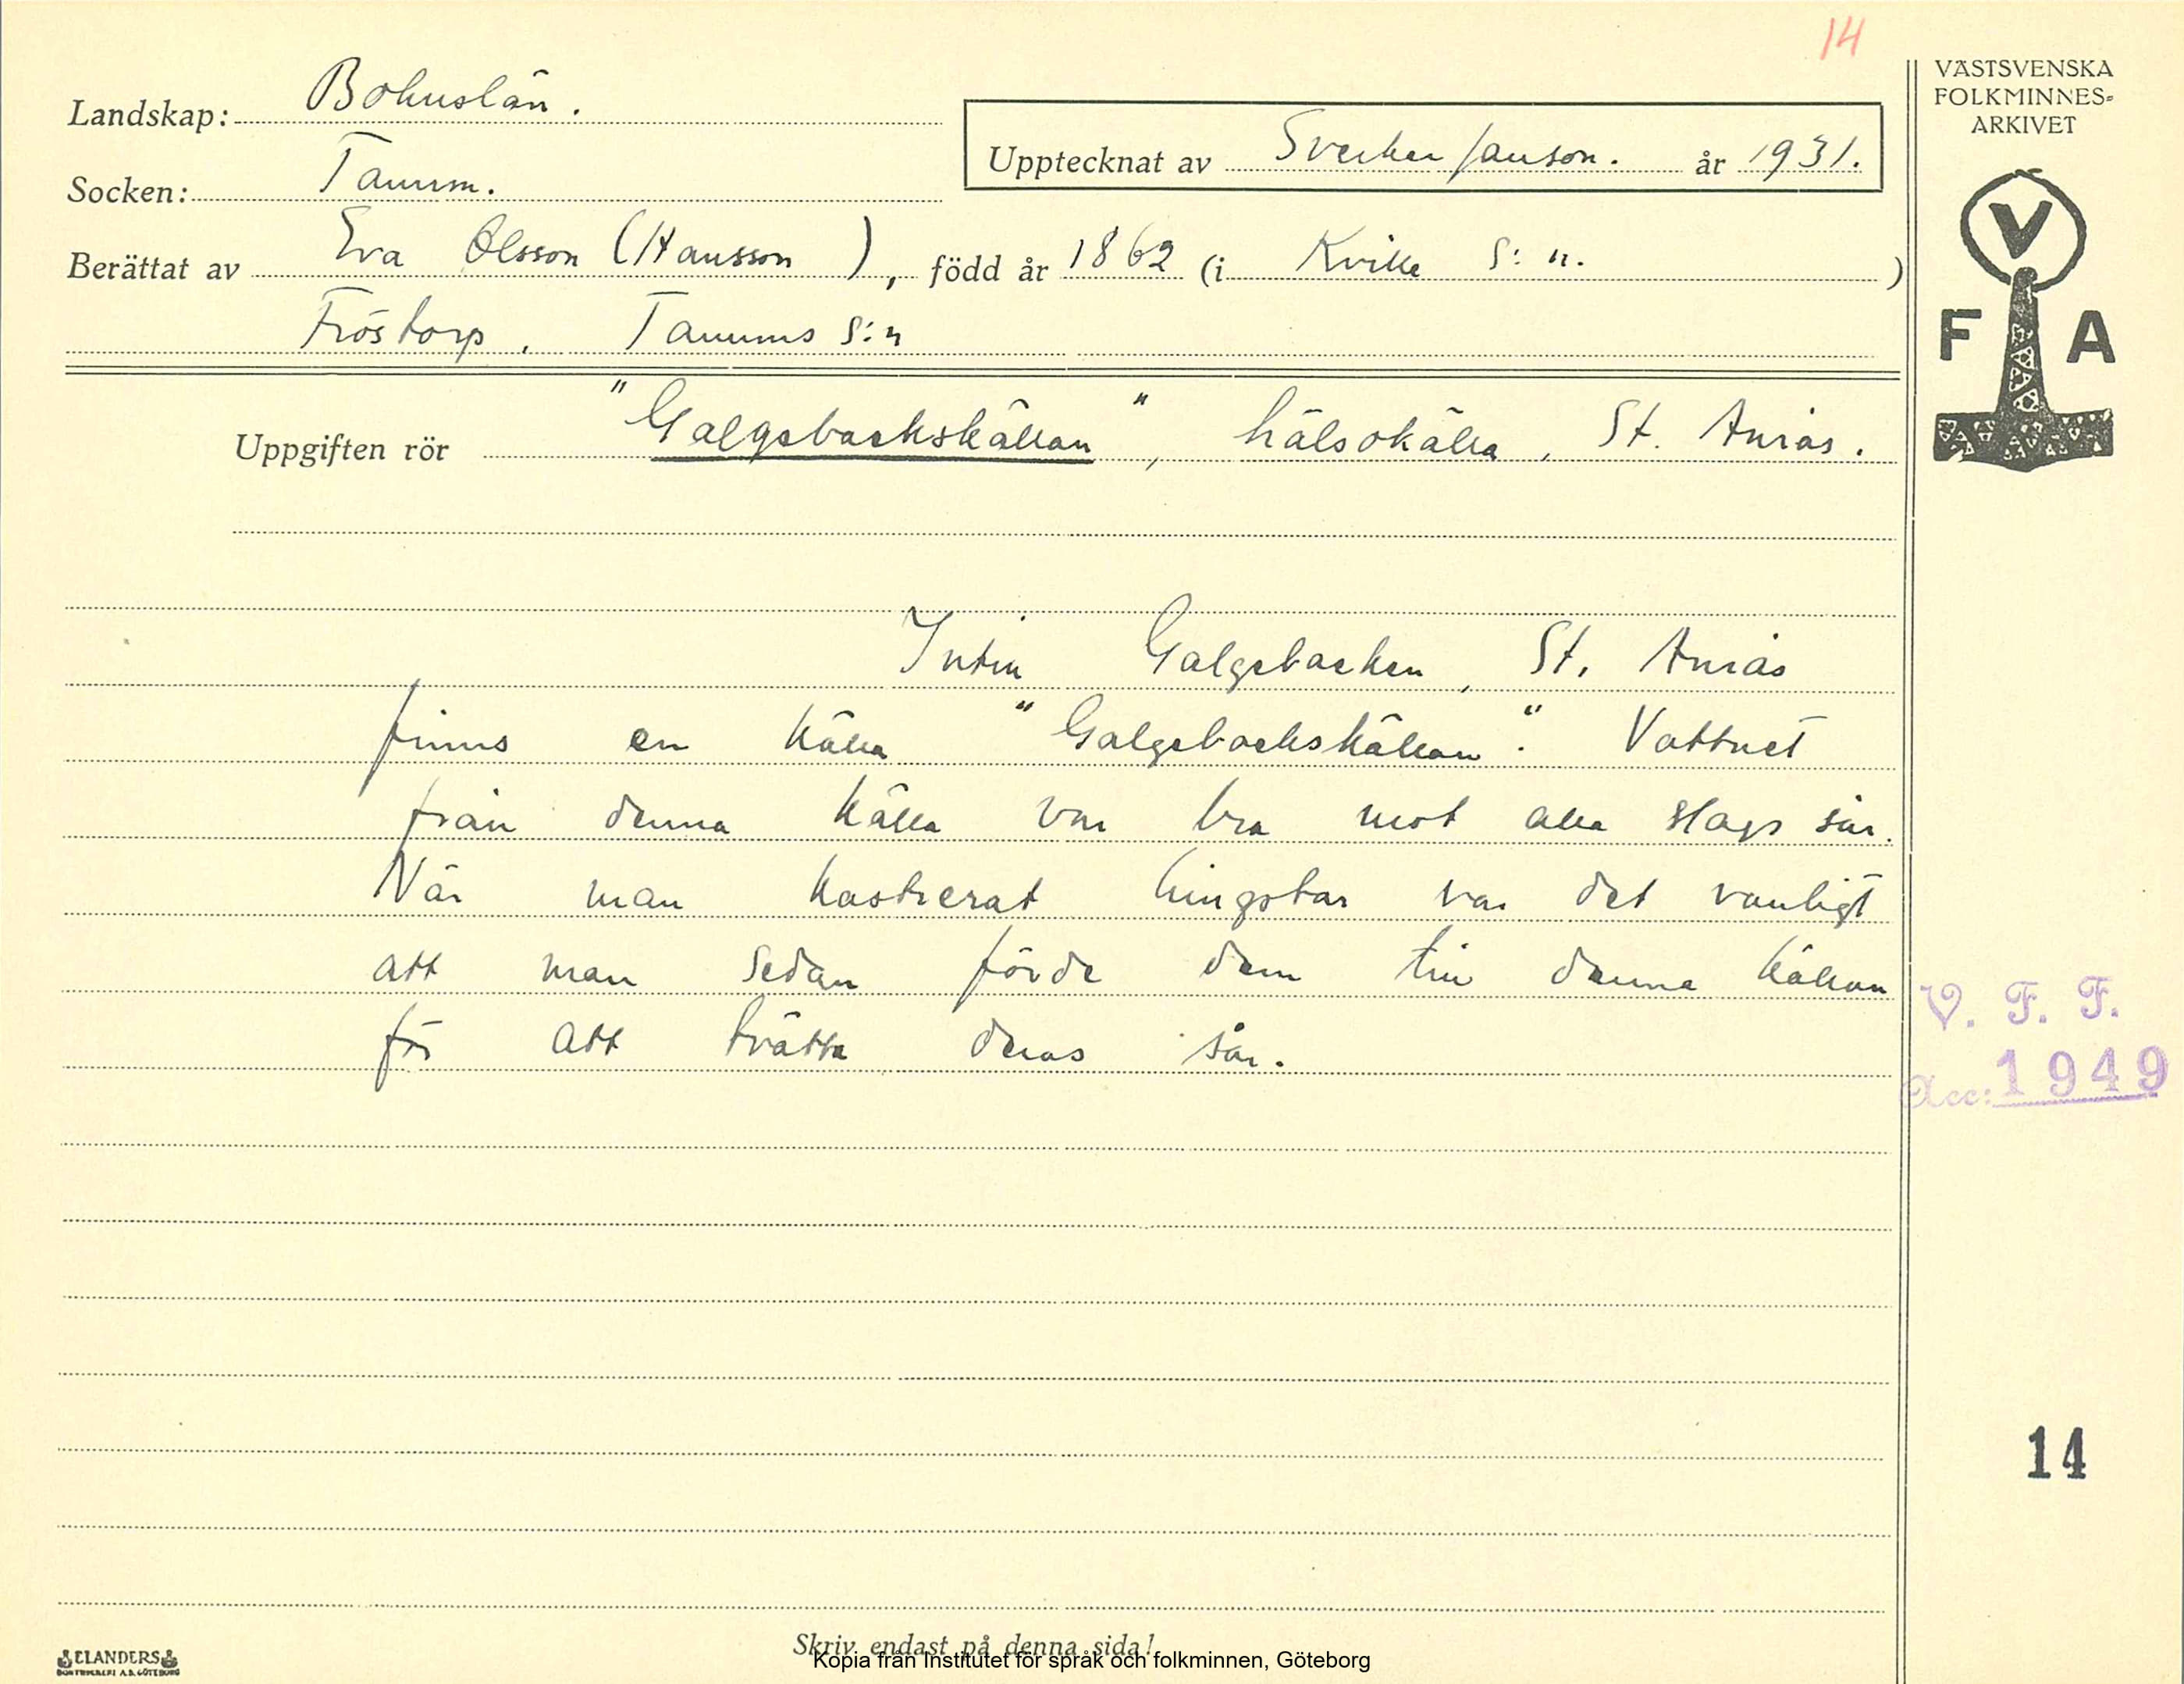 14
VÄSTSVENSKA
FOLKMINNES-
ARKIVET
Landskap: Bohuslän.
Upptecknat av Sverker Janson. år 1931.
Socken: Tanum.
Berättat av Eva Olsson (Hansson), född år 1862 (i Kville S:n.)
Fröstorp, Tanums S:n
V
F A
Uppgiften rör "Galgebackskällan", hälsokälla, St. Anrås.
Intill Galgebacken, St. Anrås
finns en källa "Galgebackskällan". Vattnet
från denna källa var bra mot alla slags sår.
När man kastrerat hingstar var det vanligt
att man sedan förde dem till denna källan
för att tvätta deras sår.
V. F. F.
Acc: 1949
14
Skriv endast på denna sida!
Kopia från Institutet för språk och folkminnen, Göteborg
ELANDERS
BOKTRYCKERI A.B. GÖTEBORG